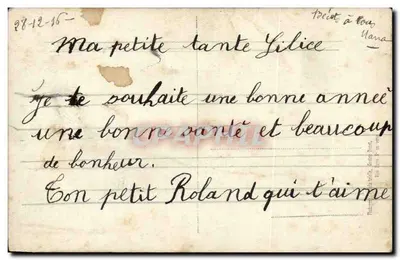 28-12-16
Ma petite tante Lilice
Je te souhaite une bonne anneé
une bonne santé et beaucoup
de bonheur.
Ton petit Roland qui t'aime